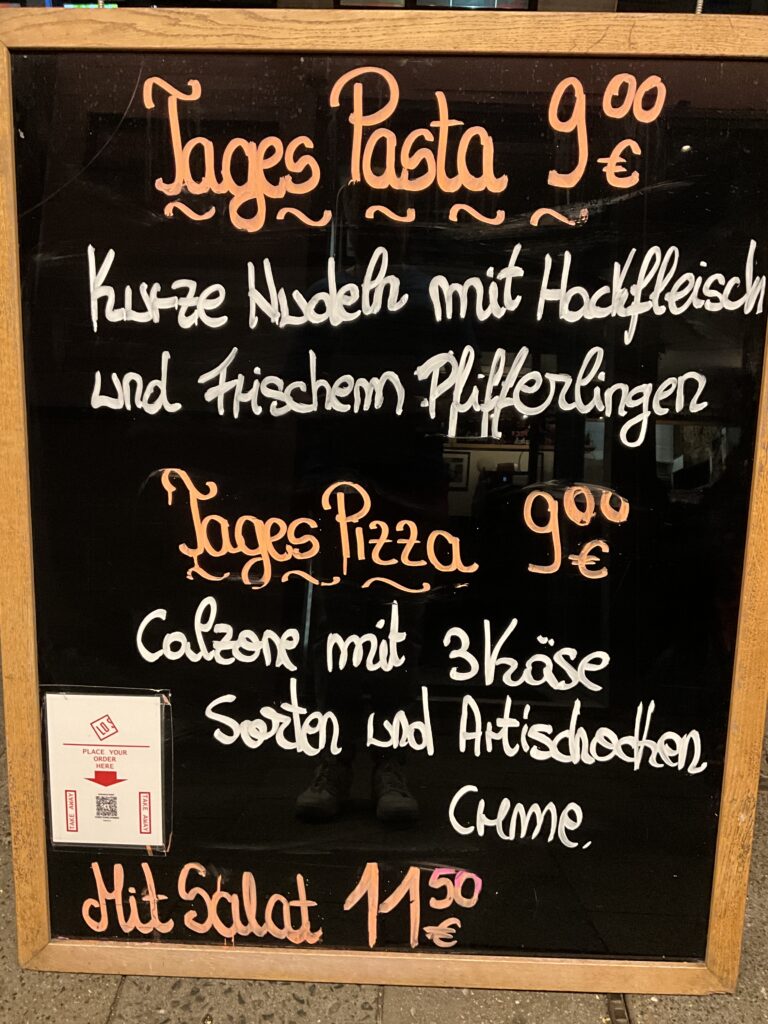 Tages Pasta 9⁰⁰ €
Kurze Nudeln mit Hackfleisch
und Frischem Pfifferlingen
Tages Pizza 9⁰⁰ €
Calzone mit 3 Käse
Sorten und Artischocken
Creme.
PLACE YOUR
ORDER
HERE
TAKE AWAY
TAKE AWAY
Mit Salat 11⁵⁰ €